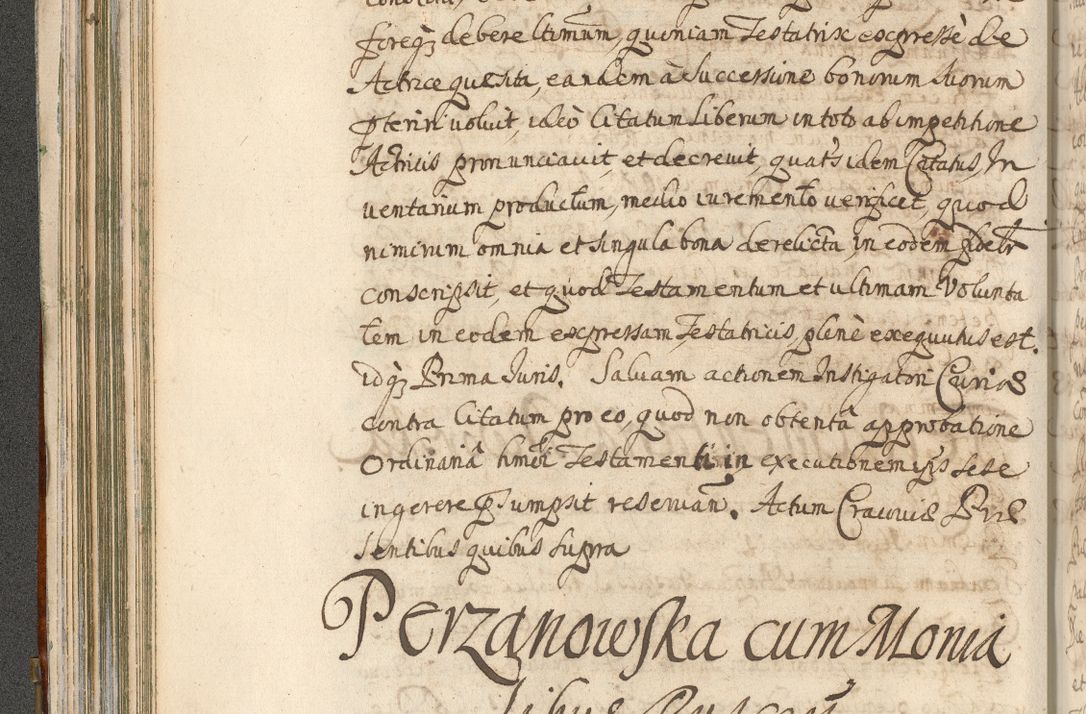 foreqꝫ debere ltimum, quoniam Testatrix expressè de
Actrice quæsita, eandem à Successione bonorum suorum
ꝑteriri voluit, ideò Citatum Liberum in toto ab impetitione
Actricis pronunciavit, et decrevit, quat’s idem Citatus, In
ventarium productum, medio iuramento verificet, quod
nimirum omnia et singula bona derelicta, in eodem fidelr
conscripsit, et quod Testamentum et ultimam Volunta
tem in eodem expressam Testatricis plenè exequutus est.
idqꝫ Prima Juris. Salvam actionem Instigatori Curiæ
contra Citatum pro eo, quod non obtentâ approbatione
Ordinariâ hmõi Testamenti in executionem ips sese
ingerere ꝑsumpsit reservan̄. Actum Cracoviæ Præ
sentibus quibus supra
Perzanowska cum Monia
libus